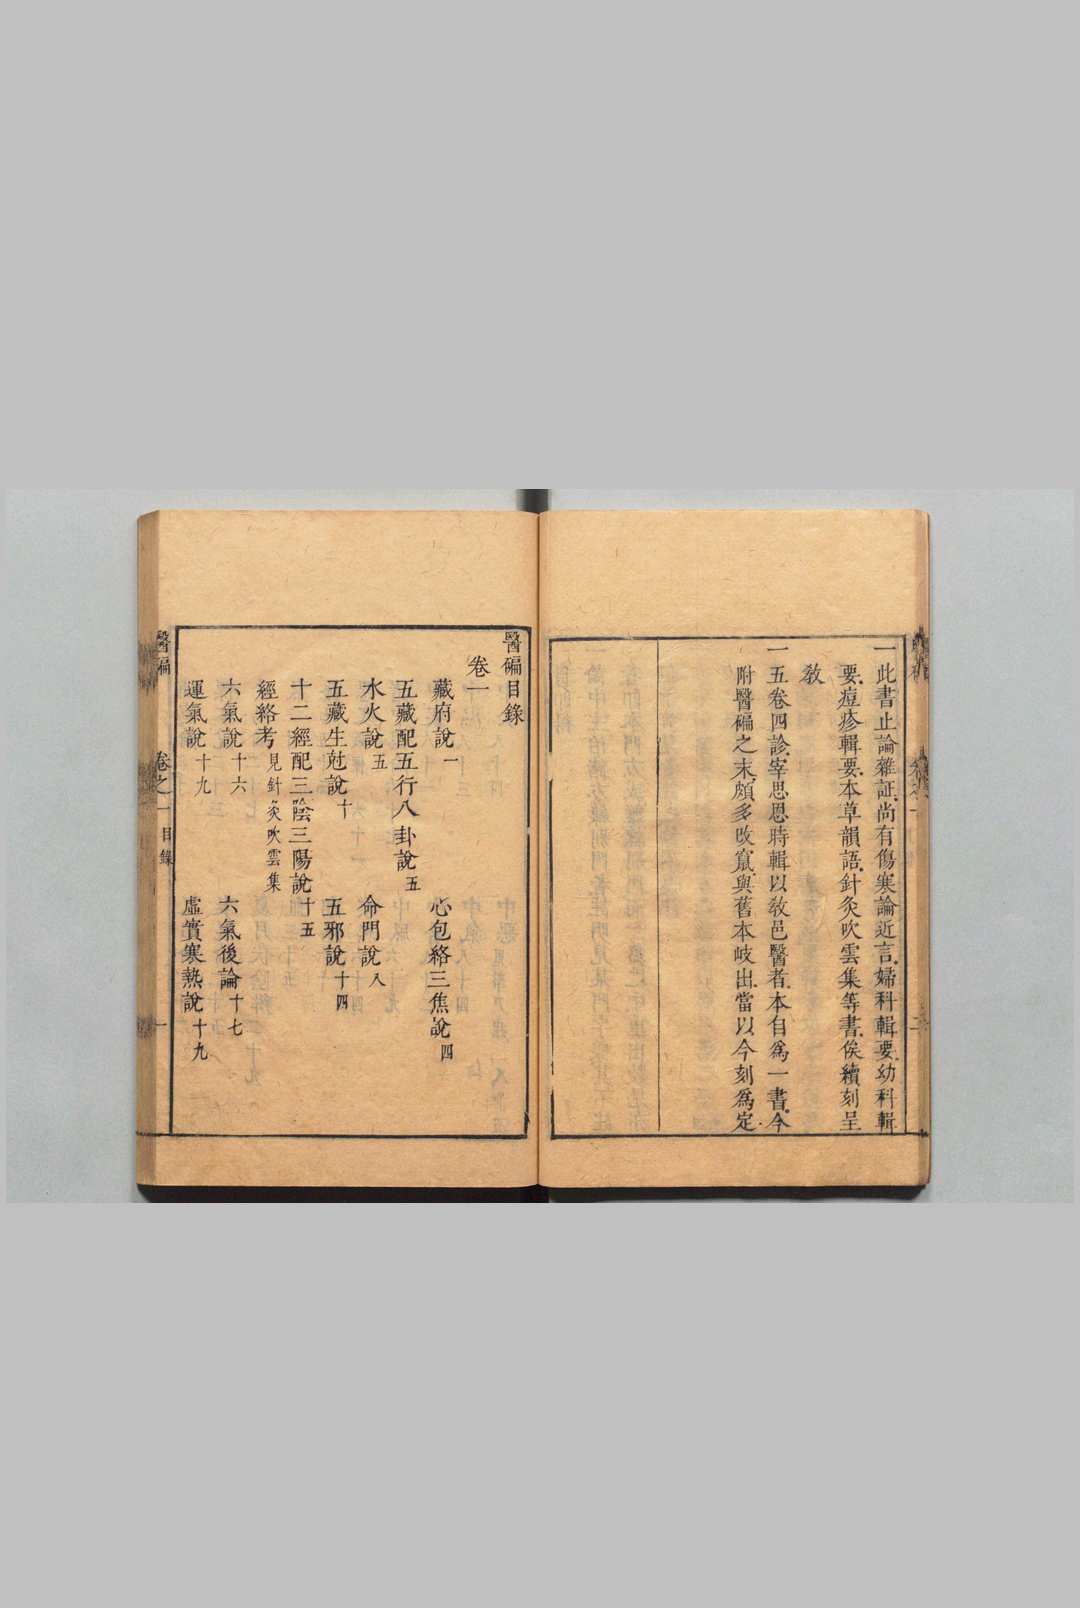 一此書止論雜証尚有傷寒論近言婦科輯要幼科輯
要痘疹輯要本草韻語針灸吹雲集等書俟續刻呈
敎
一五卷四診宰思恩時輯以敎邑醫者本自爲一書今
附醫碥之末頗多改竄與舊本岐出當以今刻爲定
醫碥目錄
卷一
藏府說一 心包絡三焦說四
五藏配五行八卦說五
水火說五 命門說八
五藏生尅說十 五邪說十四
十二經配三陰三陽說十五
經絡考見針灸吹雲集
六氣說十六 六氣後論十七
運氣說十九 虛實寒熱說十九
醫碥 卷之一 目錄 一